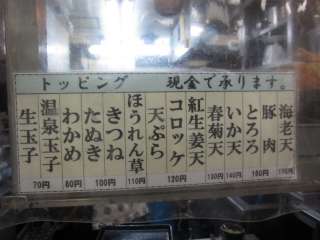 トッピング 現金で承ります。
海老天
豚肉
とろろ
いか天
春菊天
紅生姜天
コロッケ
天ぷら
ほうれん草
きつね
たぬき
わかめ
温泉玉子
生玉子
70円 60円 100円 110円 120円 130円 140円 150円